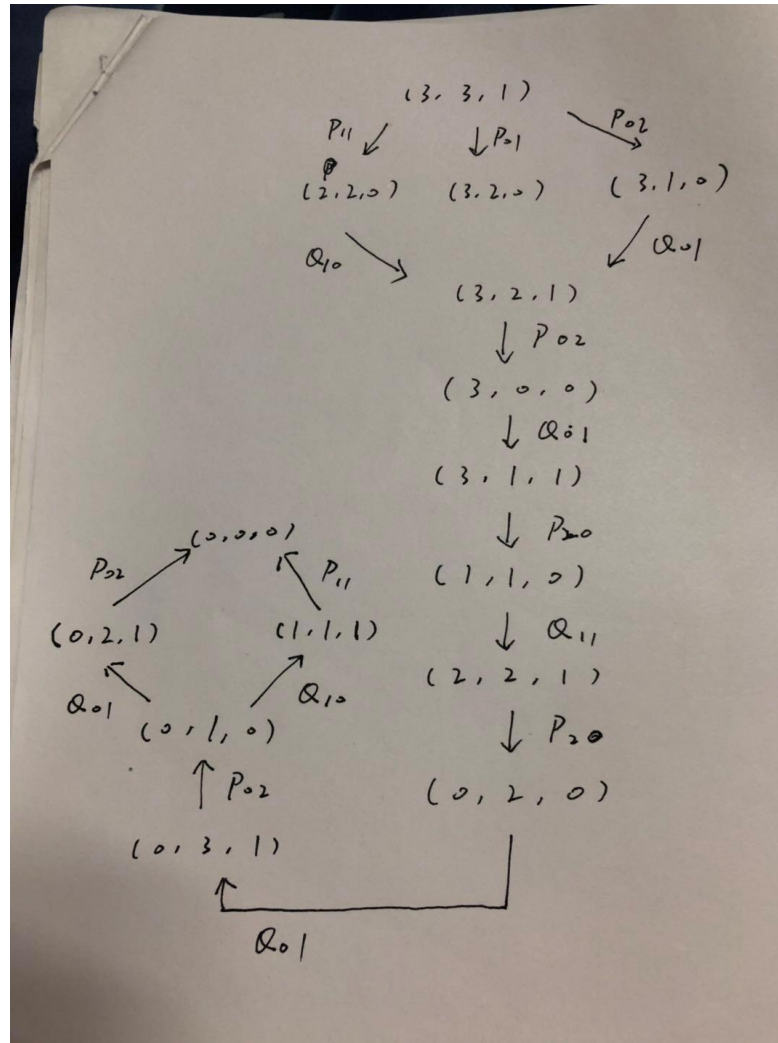 (3, 3, 1)
P11 P01 P02
(2,2,0) (3.2.0) (3.1,0)
Q10 Q01
(3, 2, 1)
P02
(3, 0, 0)
Q01
(3, 1, 1)
P20
(1, 1, 0)
Q11
(2, 2, 1)
P20
(0, 2, 0)
Q01
(0, 3, 1)
P02
(0, 1, 0)
Q01 Q10
(0,2,1) (1.1,1)
P02 P11
(0,0,0)